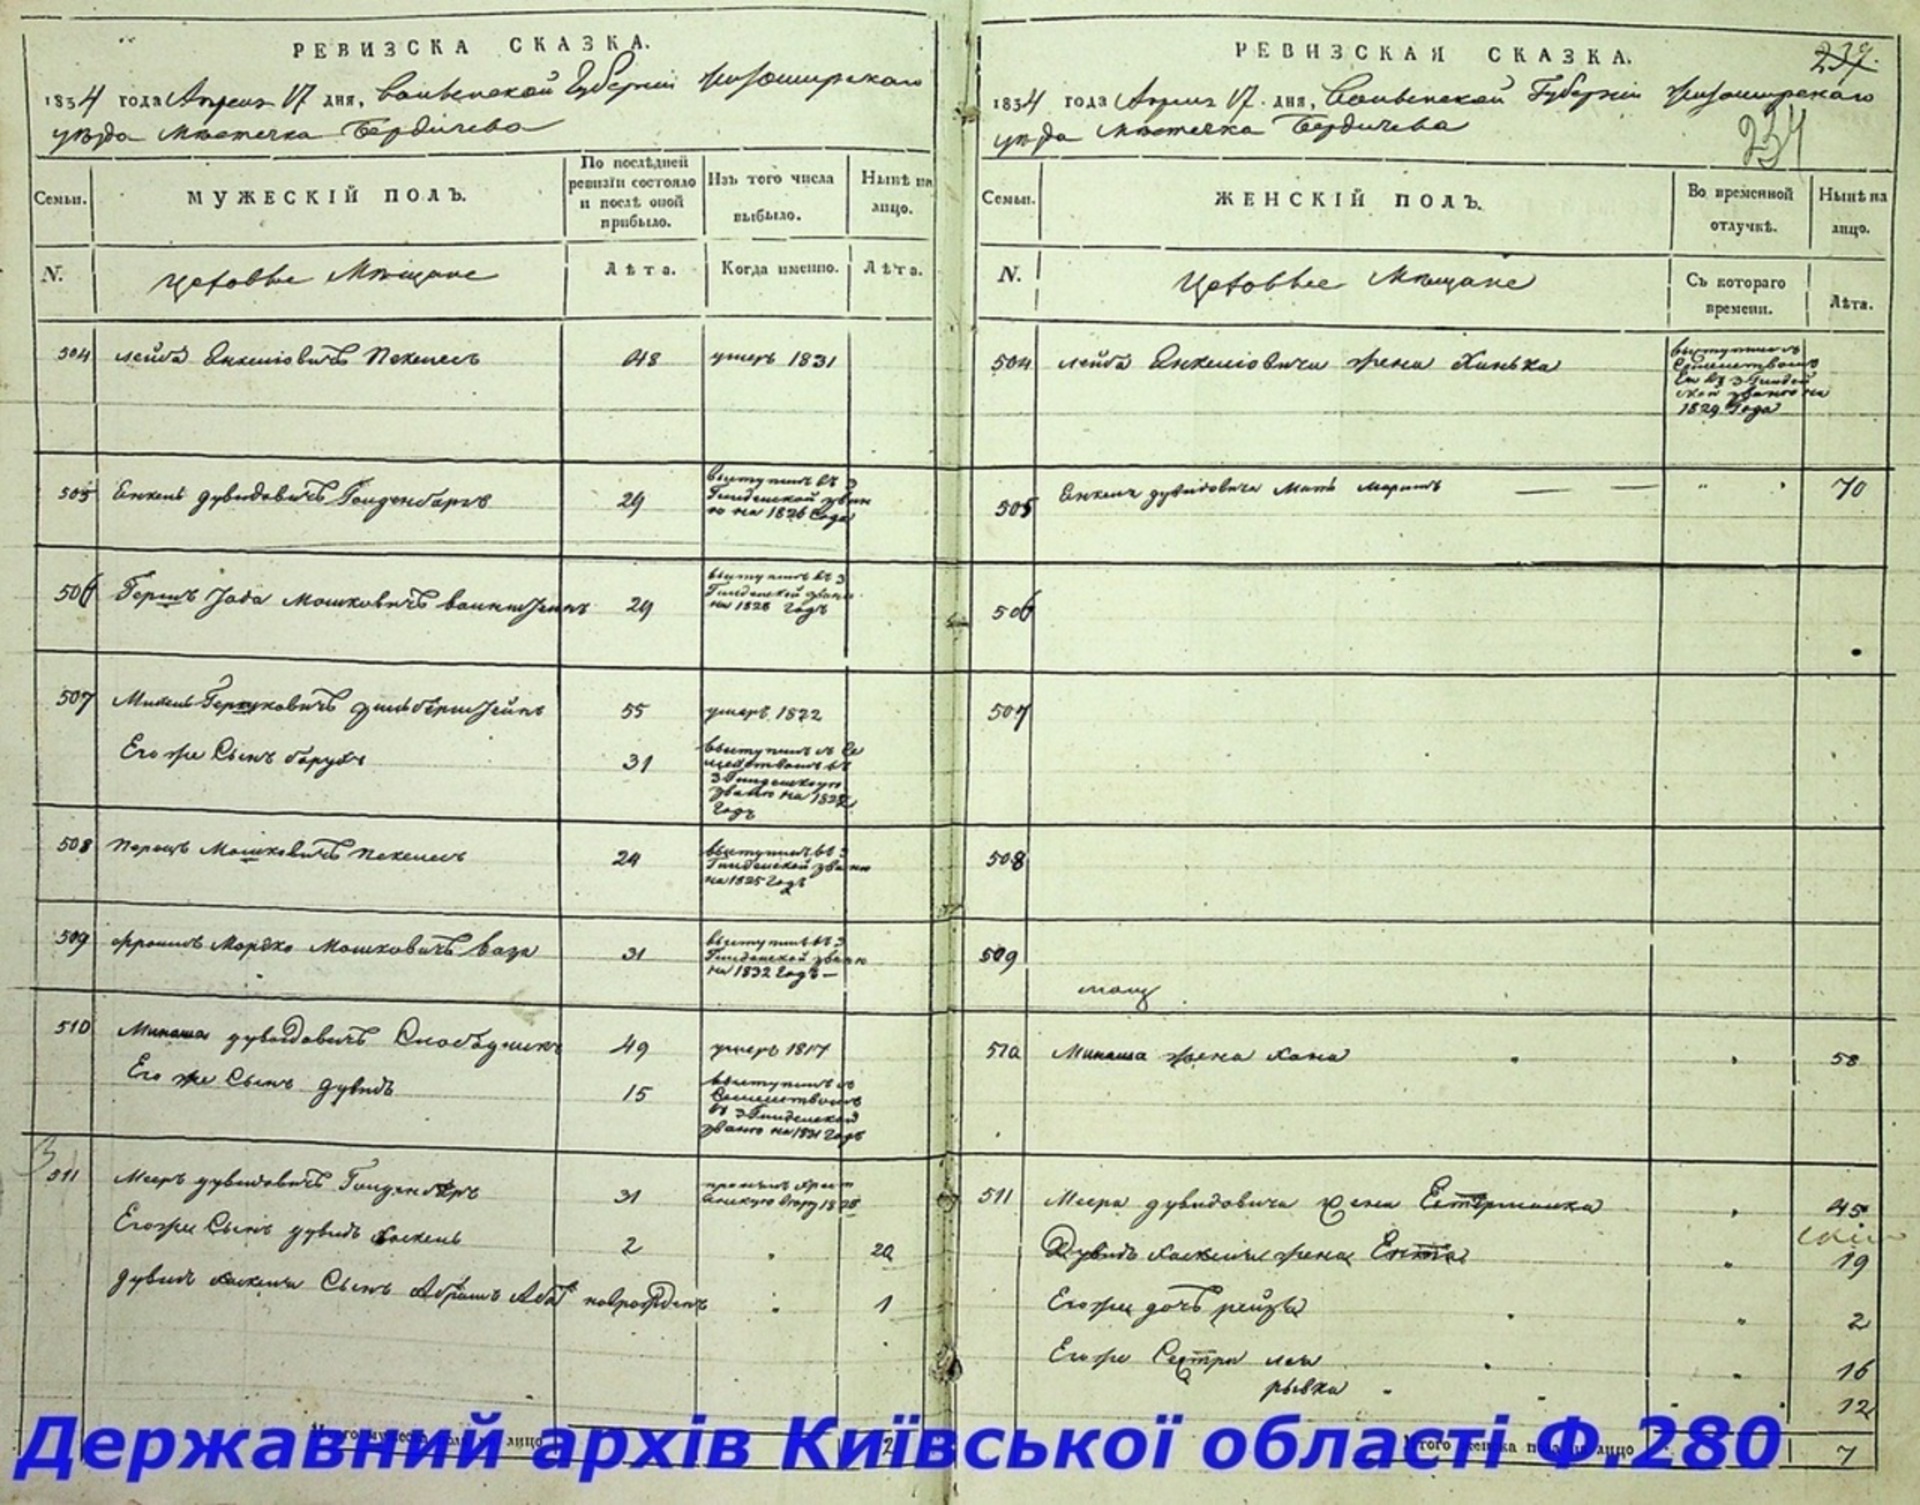 РЕВИЗСКА СКАЗКА.
1834 года Апреля 17 дня, Волынской Губернии Житомирского
уѣзда Мѣстечка Бердичева
Семьи.
МУЖЕСКІЙ ПОЛЪ.
По послѣдней
ревизіи состояло
и послѣ оной
прибыло.
Изъ того числа
выбыло.
Нынѣ на
лицо.
N.
Цеховые Мѣщане
Лѣта.
Когда именно.
Лѣта.
504 Лейба Енкелiовичъ Пекелесъ 48 умеръ 1831
505 Енкель Дувидовичъ Голденбергъ 29
выступилъ въ 3
Гилдейской звані
ю на 1826 Года
506 Гершъ Мошковичъ 29
выступилъ въ 3
Гилдейской звані
на 1828 Годъ
507 55 умеръ 1822
Его же Сынъ Барухъ 31
выступилъ съ Се
мействомъ въ
3 Гилдейскую
званію на
Годъ
508 Перецъ Мошковичъ Пекелесъ 24
выступилъ въ 3
Гилдейской званію
на 1825 Годъ
509 Мордко Мошковичъ Ваза 31
выступилъ въ 3
Гилдейской звані
на 1832 Годъ —
510 Минаша Дувидовичъ 49 умеръ 1817
Его же Сынъ Дувидъ 15
выступилъ съ
Семействомъ
въ 3 Гилдейской
званію на 1831 Годъ
511 Мееръ Дувидовичъ Голденбергъ 31
Его же Сынъ Дувидъ Хаскель 2 20
Дувидъ Хаскеля Сынъ Абрамъ Аба новрожденъ 1
РЕВИЗСКАЯ СКАЗКА.
239.
1834 года Апреля 17. дня, Волынской Губерніи Житомирскаго
уѣзда Мѣстечка Бердичева
234
Семьи.
ЖЕНСКІЙ ПОЛЪ.
Во временной
отлучкѣ.
Нынѣ на
лицо.
N.
Цеховые Мѣщане
Съ котораго
времени.
Лѣта.
504 Лейба Енкелiовича жена Хинька
выступила съ
Семействомъ
3 Гилдей
ской званію на
1829 Года
505 Енкеля Дувидовича Мать 70
506
507
508
509
510 Минаша жена Хана 58
511 Меера Дувидовича жена 45
Дувидъ Хаскеля жена Ента 19
Его же дочь Рейзя 2
Его же Сестры Лея 16
Рывка 12
Итого мужеска полу на лицо 2
Итого женска пола на лицо 7
Державний архів Київської області Ф.280